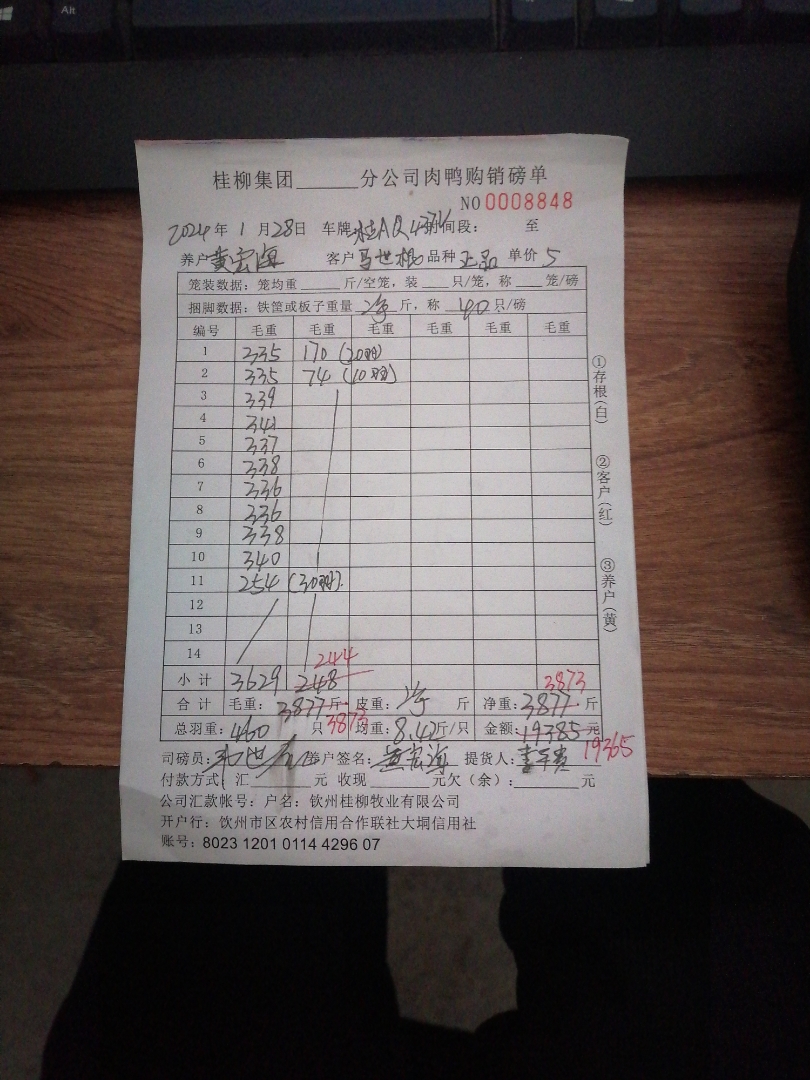 Alt
桂柳集团______分公司肉鸭购销磅单
NO 0008848
2024年 1 月 28日 车牌:桂AQ 时间段: 至
养户 黄宏海 客户 马世根 品种 正品 单价 5
笼装数据: 笼均重______斤/空笼, 装____只/笼, 称____笼/磅
捆脚数据: 铁筐或板子重量 净 斤, 称 40 只/磅
编号 毛重 毛重 毛重 毛重 毛重 毛重
1 335 170 (20羽)
2 335 74 (10羽)
3 339
4 341
5 337
6 338
7 336
8 336
9 338
10 340
11 254 (30羽)
12
13
14
244
小计 3629 248 3873
合计 毛重: 3877斤 皮重: 净 斤 净重: 3877 斤
总羽重: 460 只 3873 均重: 8.42斤/只 金额: 19385元
19365
司磅员: 养户签名: 黄宏海 提货人:
付款方式: 汇______元 收现______元欠(余):______元
公司汇款帐号: 户名: 钦州桂柳牧业有限公司
开户行: 钦州市区农村信用合作联社大垌信用社
账号: 8023 1201 0114 4296 07
①存根(白)
②客户(红)
③养户(黄)